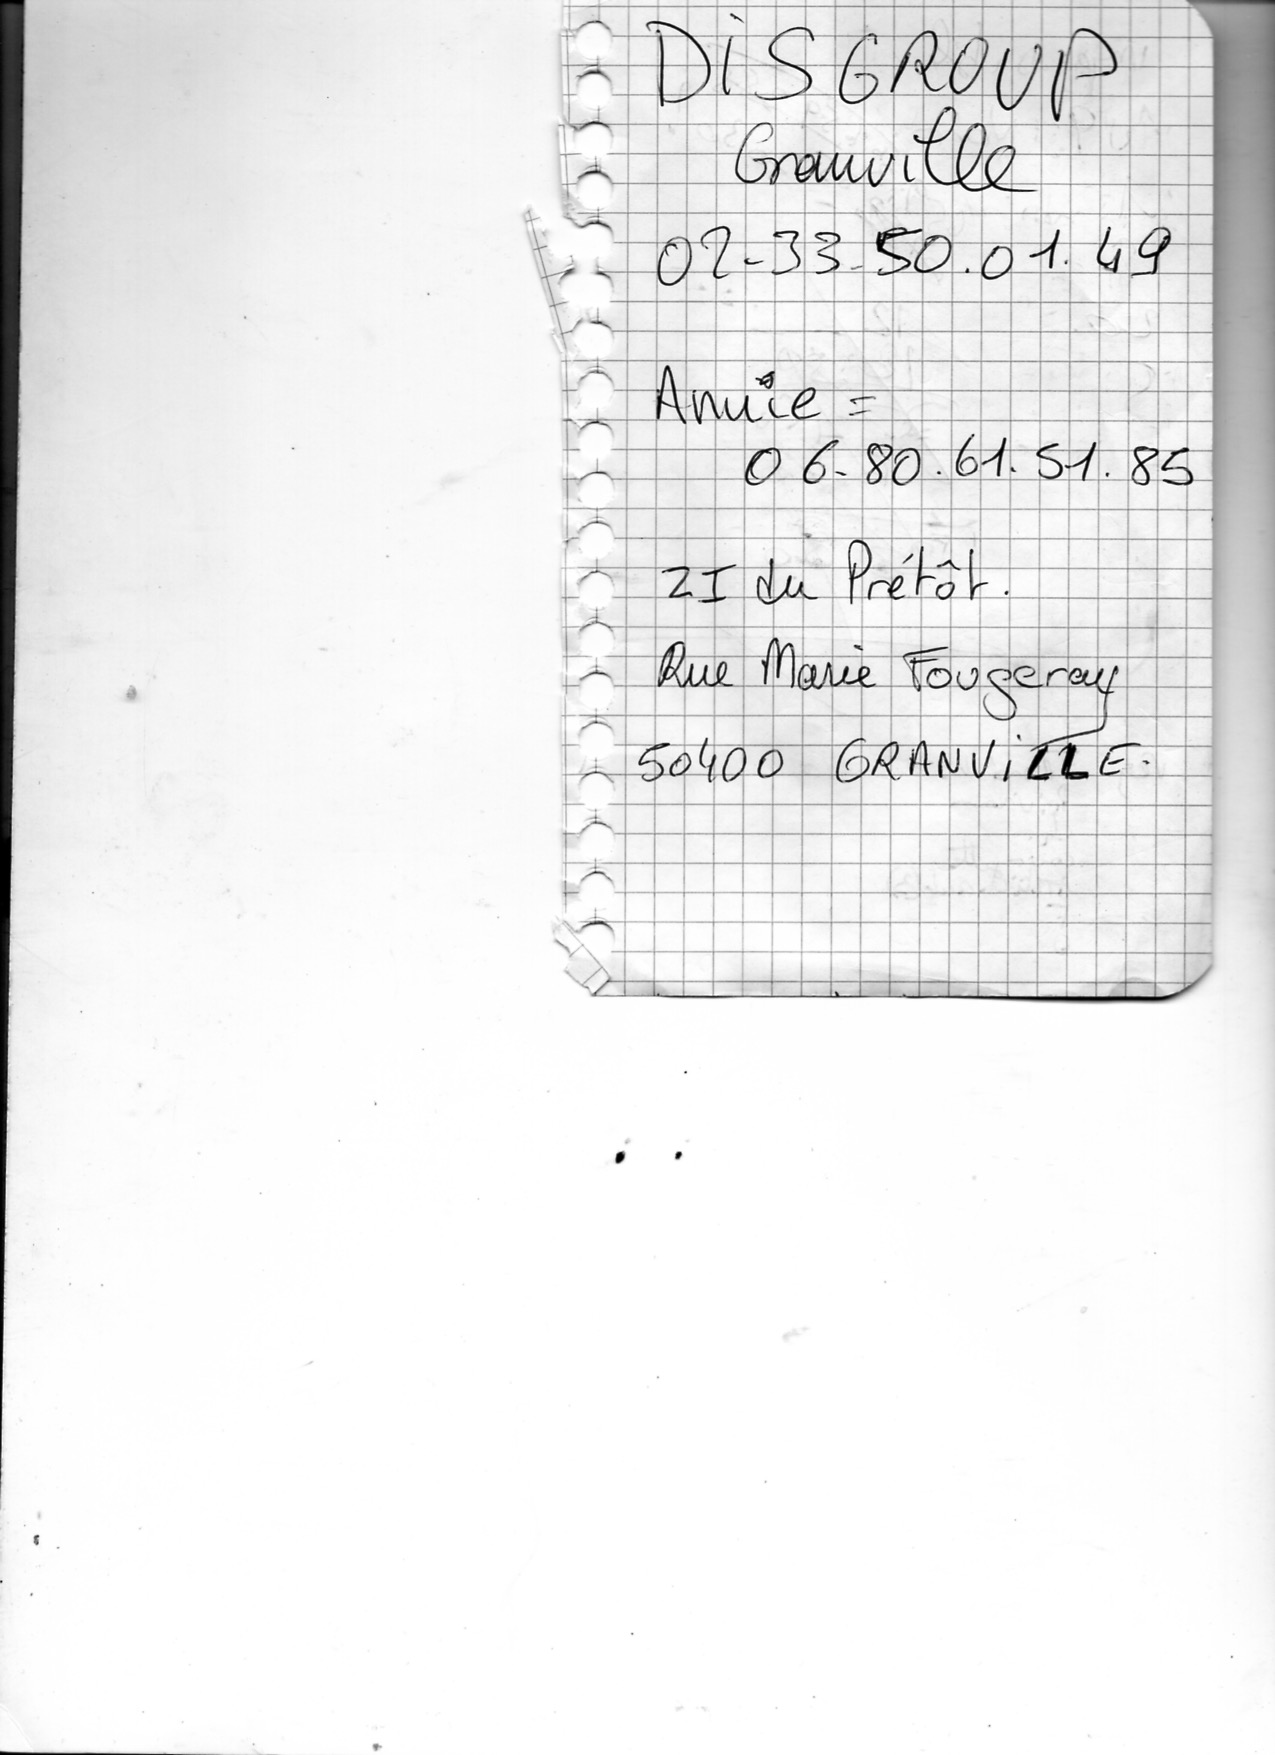 DiSGROUP
Granville
02-33-50.01.49
Annie =
06-80.61.51.85
ZI du Prétôt.
Rue Marie Fougeray
50400 GRANViLLE.